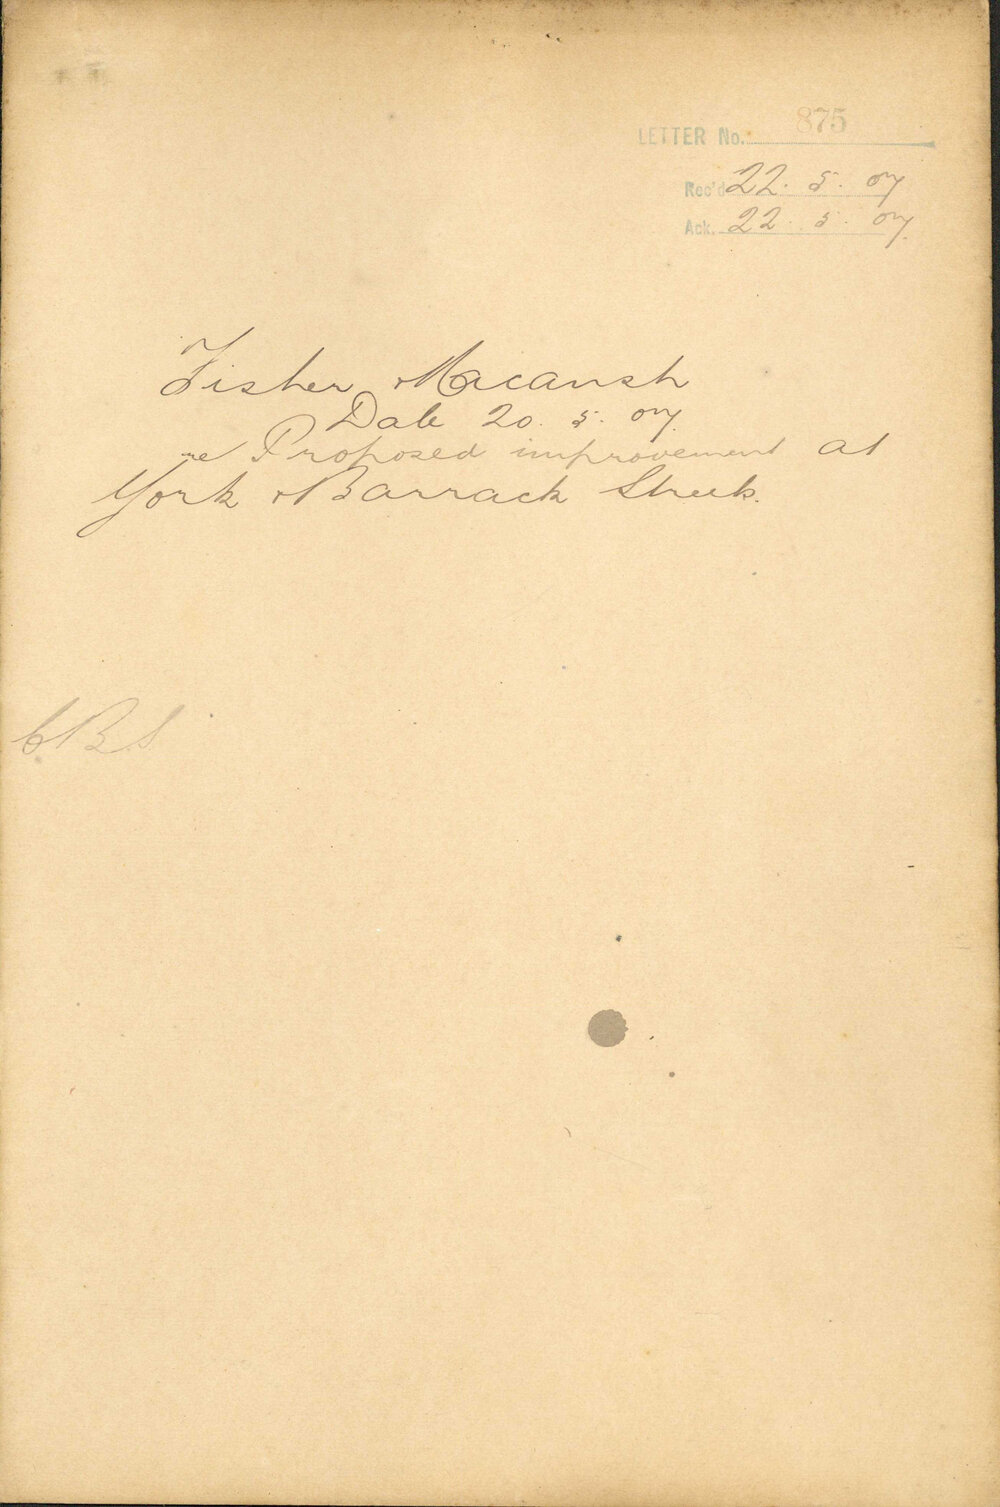 LETTER No. 875
Rec'd 22. 5. 07
Ack. 22. 5. 07.
Fisher & Macansh
Date 20. 5. 07.
re Proposed improvement at
York & Barrack Streets.
CBS